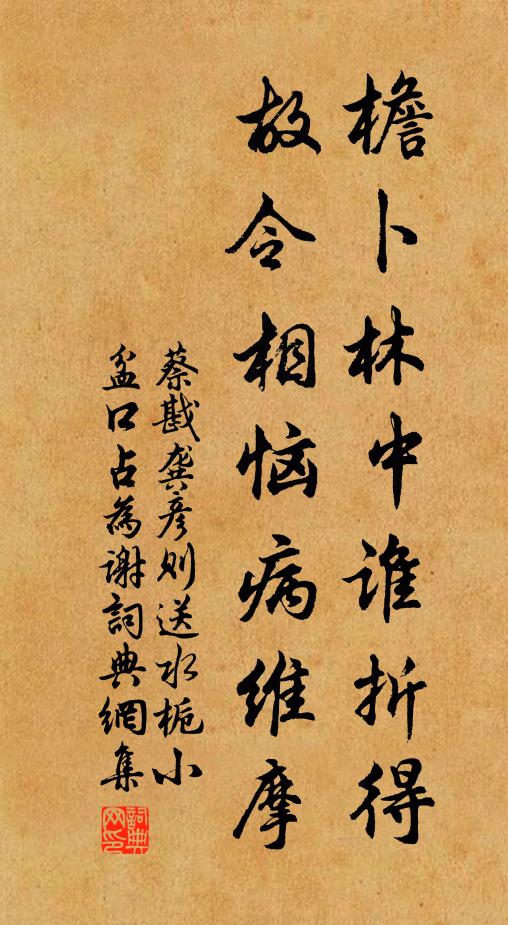 檐卜林中谁折得
故令相恼病维摩
蔡戡龚彦则送水栀小
盆口占为谢詞典網集
詞典网印